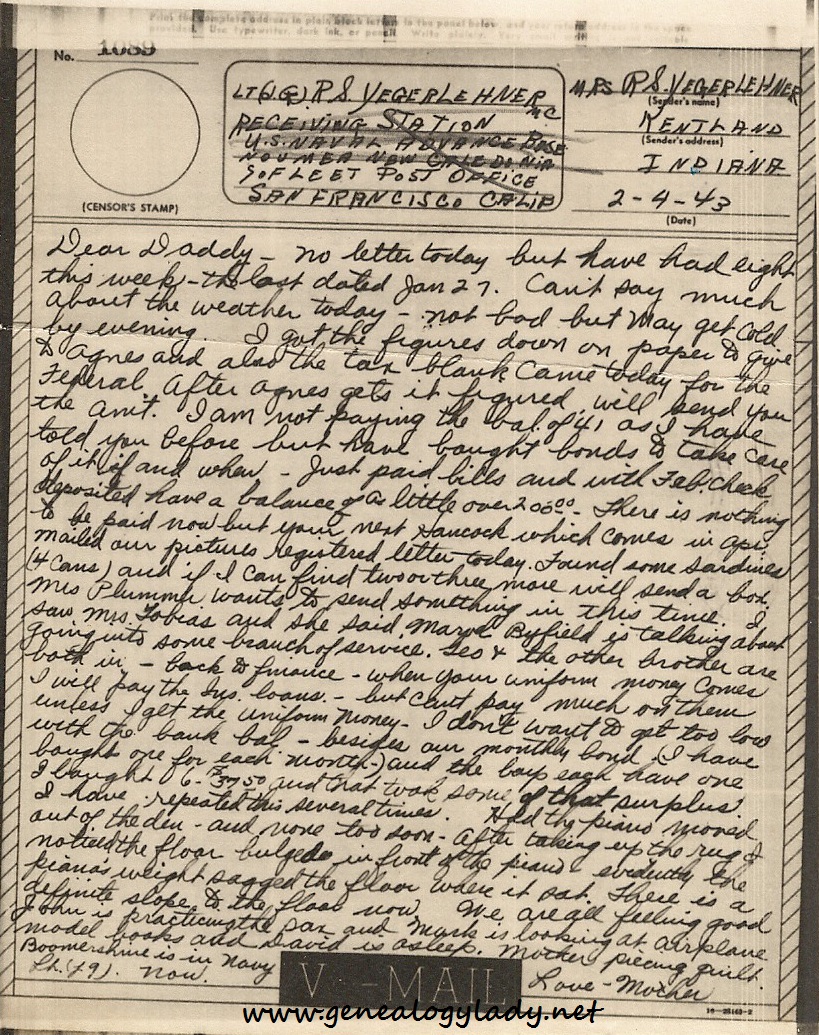 Print the complete address in plain block letters in the panel below, and your return address in the space
provided. Use typewriter, dark ink, or pencil. Write plainly. Very small
No. 1089
(CENSOR'S STAMP)
LT(J.G.) R S. YEGERLEHNER MC
RECEIVING STATION
U.S. NAVAL ADVANCE BASE
NOUMEA NEW CALEDONIA
% FLEET POST OFFICE
SAN FRANCISCO CALIF
MRS R S. YEGERLEHNER
(Sender's name)
KENTLAND
(Sender's address)
INDIANA
2-4-43
(Date)
Dear Daddy – no letter today but have had eight
this week – the last dated Jan 27. Can't say much
about the weather today – not bad but may get cold
by evening. I got the figures down on paper to give
to Agnes and also the tax blank came today for the
Federal. After Agnes gets it figured, will send you
the amt. I am not paying the bal. of 41 as I have
told you before but have bought bonds to take care
of it if and when – Just paid bills and with Feb. check
deposited have a balance of a little over 200.00 – There is nothing
to be paid now but your next Hancock which comes in Apr.
mailed our pictures registered letter today. Found some sardines
(4 cans) and if I can find two or three more will send a box.
Mrs Plummer wants to send something in this time. I
saw Mrs Tobias and she said Marvel Byfield is talking about
going into some branch of service. Leo & the other brother are
both in. – back to finance – when your uniform money comes
I will pay the Ins. loans. – but can't pay much on them
unless I get the uniform money – I don't want to get too low
with the bank bal – besides our monthly bond (I have
bought one for each month –) and the boys each have one
I bought 6 – $37.50 and that took some of that surplus.
I have repeated this several times. Had the piano moved
out of the den – and none too soon – After taking up the rug I
noticed the floor bulged in front of the piano – evidently the
piano's weight sagged the floor where it sat. There is a
definite slope to the floor now. We are all feeling good
John is practicing the sax and Mark is looking at airplane
model books and David is asleep. Mother piecing quilt.
Boomershine is in Navy
Lt. (J.G). now.
Love – Mother
V - MAIL
16-28143-2
www.genealogylady.net